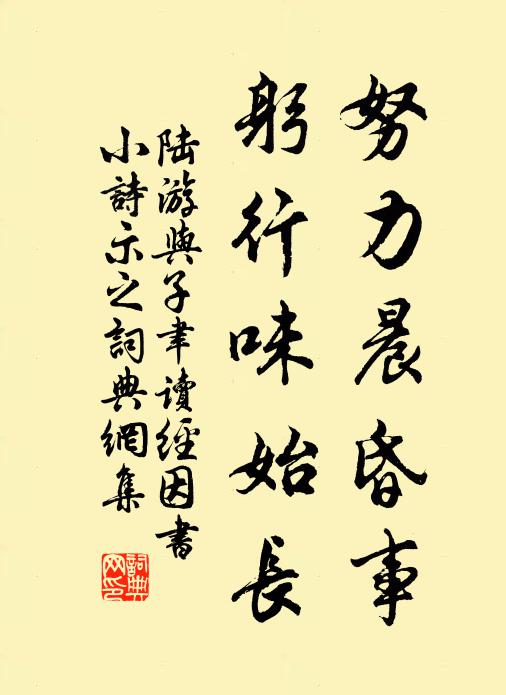 努力晨昏事
躬行味始長
陸游與子聿讀經因書
小詩示之詞典網集
詞典
网印